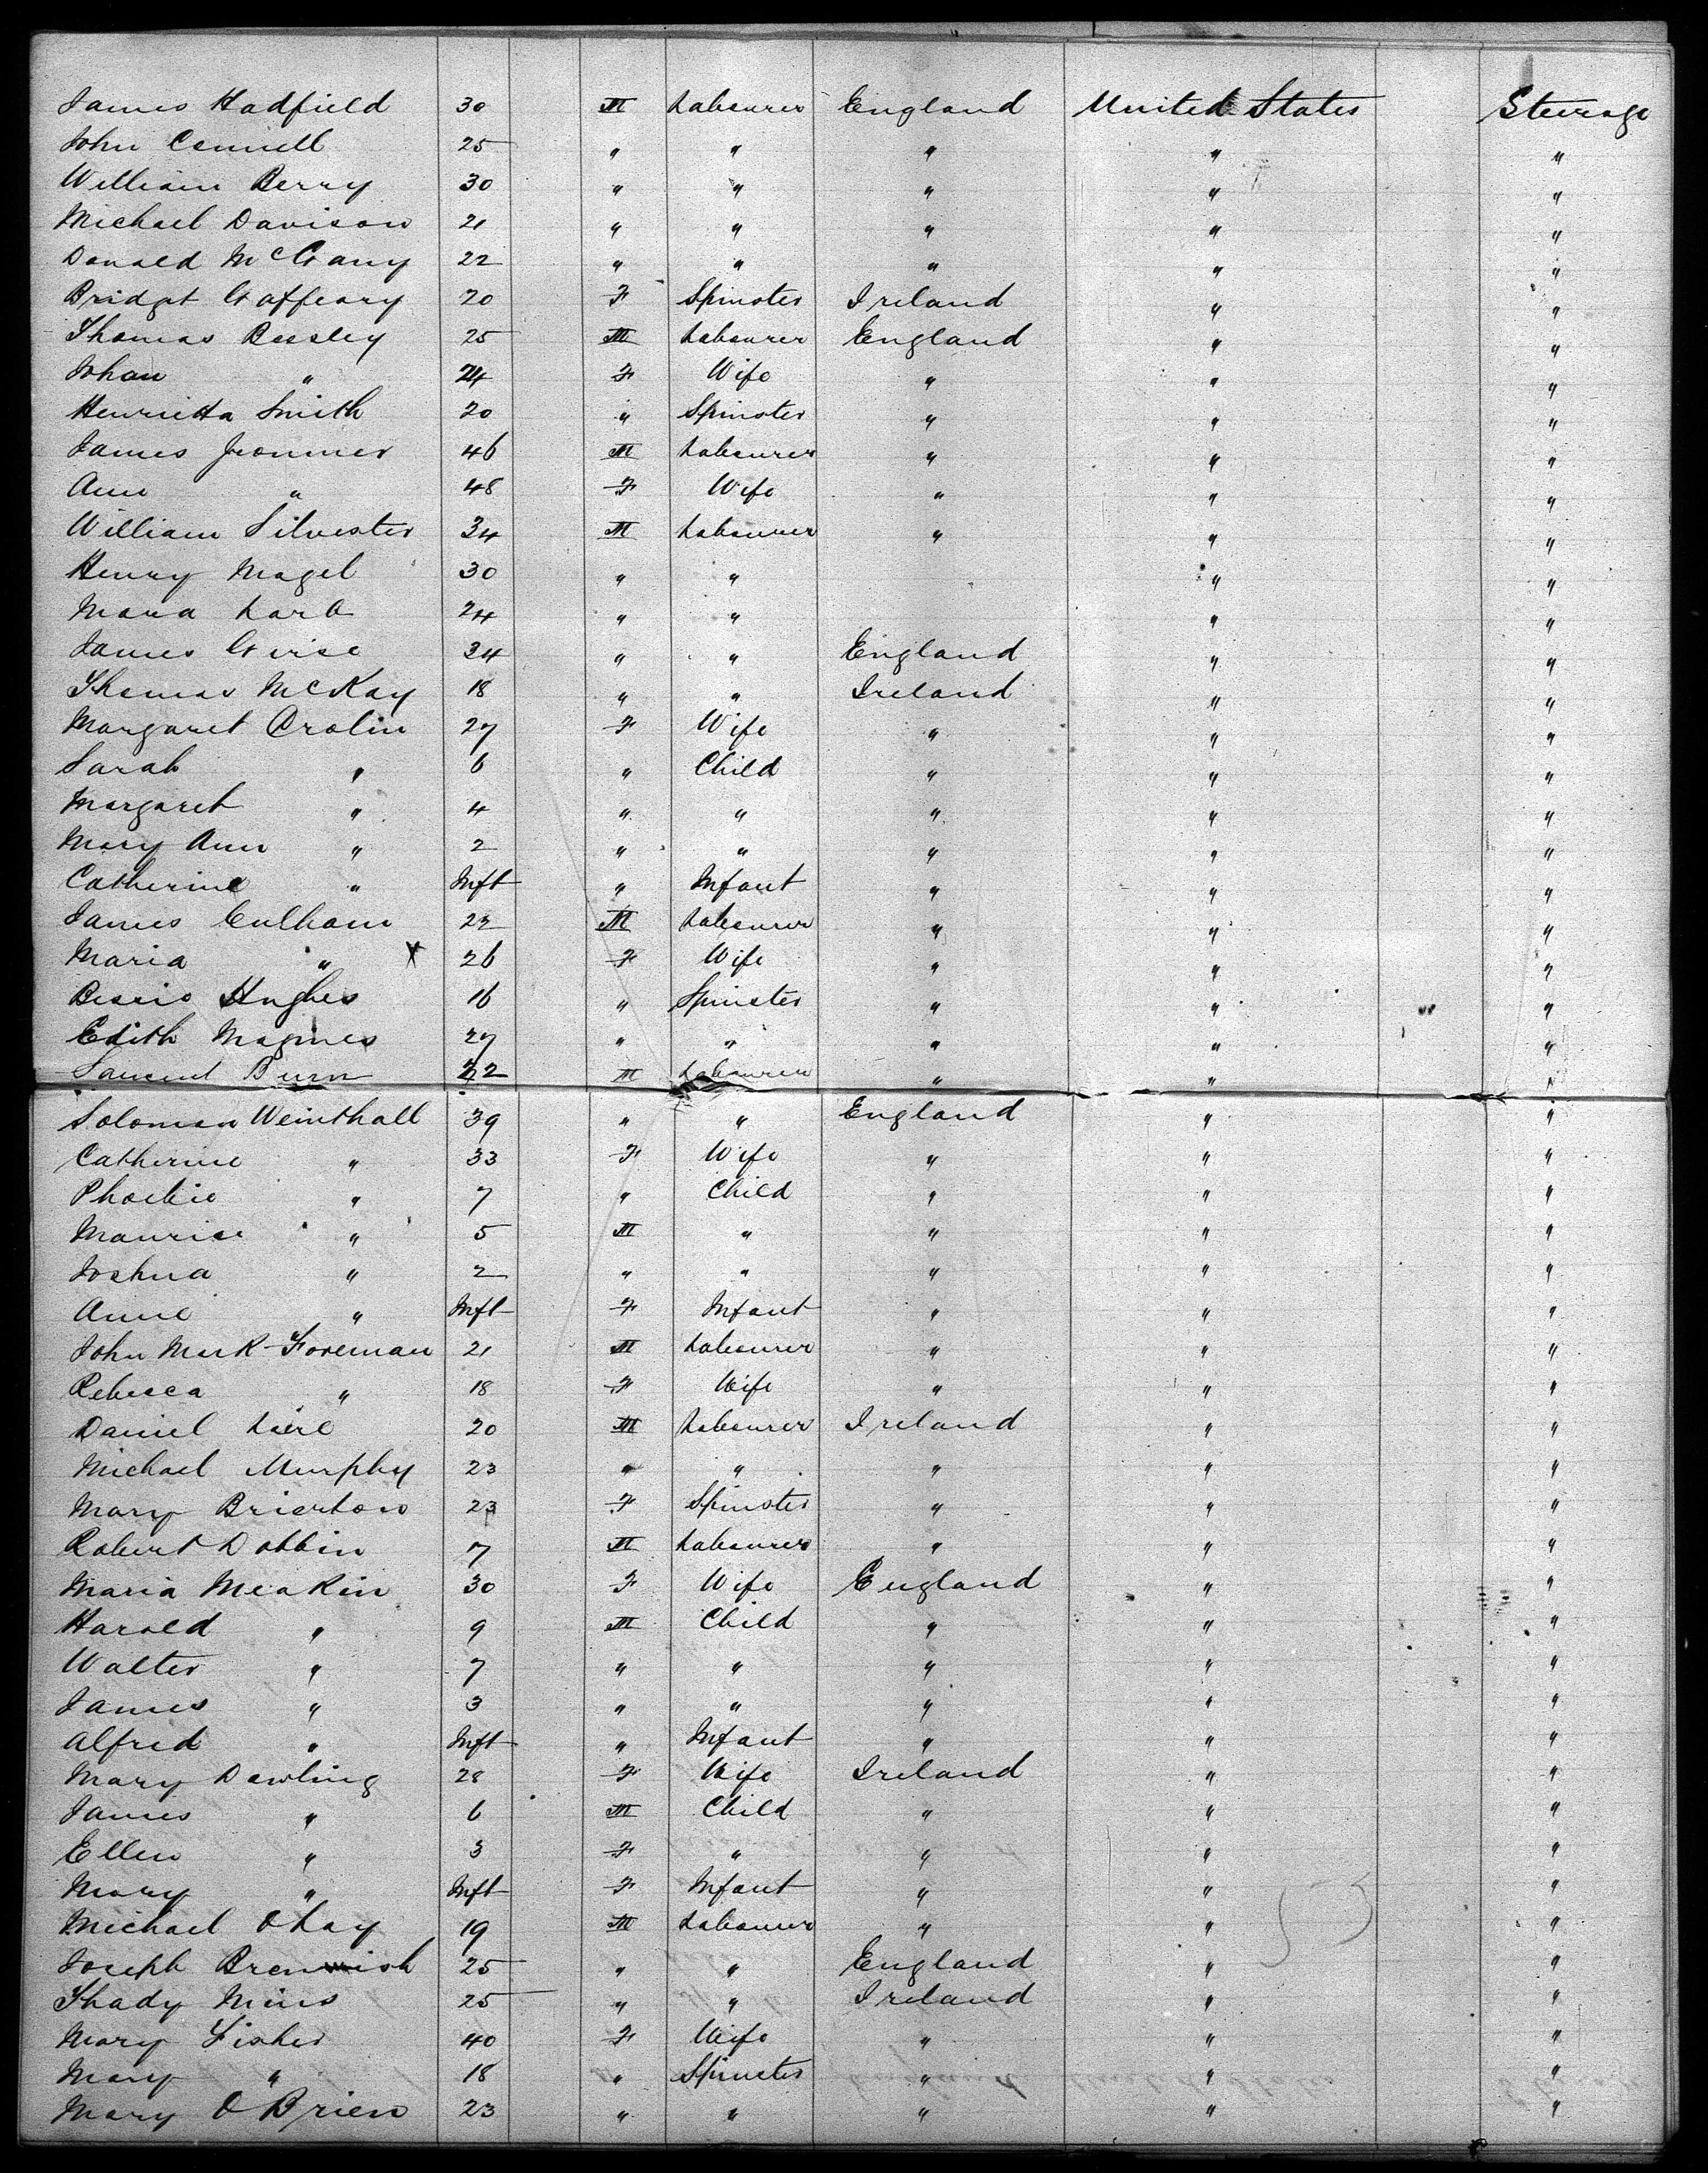 James Hadfield 30 M Labourer England United States Steerage
John Connell 25 " " " " "
William Berry 30 " " " " "
Michael Davison 21 " " " " "
Donald McGany 22 " " " " "
Bridget Gaffeary 20 F Spinster Ireland " "
Thomas Bessley 25 M Labourer England " "
Johan " 24 F Wife " " "
Henrietta Smith 20 " Spinster " " "
James 46 M Labourer " " "
Ann " 48 F Wife " " "
William Silvester 34 M Labourer " " "
Henry Magel 30 " " " "
24 " " " "
James Guise 34 " " England " "
Thomas McKay 18 " " Ireland " "
Margaret Crolin 27 F Wife " " "
Sarah " 6 " Child " " "
Margaret " 4 " " " " "
Mary Ann " 2 " " " " "
Catherine " Inft " Infant " " "
James Culham 22 M Labourer " " "
Maria " X 26 F Wife " " "
Bessie Hughes 16 " Spinster " " "
Edith Magines 27 " " " " "
Samuel Burn 22 M Labourer " " "
Solomon Weinthall 39 " " England " "
Catherine " 33 F Wife " " "
Phoebie " 7 " Child " " "
Maurice " 5 M " " " "
Joshua " 2 " " " " "
Anne " Inft F Infant " " "
John Mark Foreman 21 M Labourer " " "
Rebecca " 18 F Wife " " "
Daniel 20 M Labourer Ireland " "
Michael Murphy 23 " " " " "
Mary Brierton 23 F Spinster " " "
Robert Dobbin 7 M Labourer " " "
Maria Meakin 30 F Wife England " "
Harold " 9 M Child " " "
Walter " 7 " " " " "
James " 3 " " " " "
Alfred " Inft " Infant " " "
Mary Dowling 28 F Wife Ireland " "
James " 6 M Child " " "
Ellen " 3 F " " " "
Mary " Inft F Infant " " "
Michael OHay 19 M Labourer " " "
Joseph 25 " " England " "
Thady Mins 25 " " Ireland " "
Mary Fisher 40 F Wife " " "
Mary " 18 " Spinster " " "
Mary OBrien 23 " " " " "